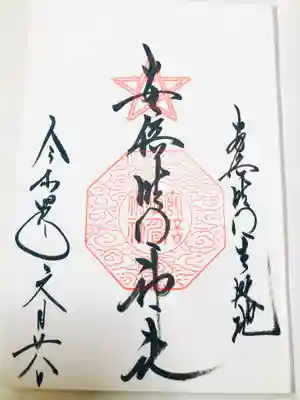 安倍晴明生誕地
安倍晴明神社
令和四年六月廿日